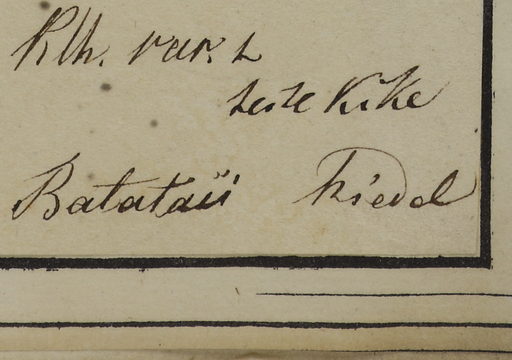 Rth. var. 2
teste Kike
Batataïs Riedel